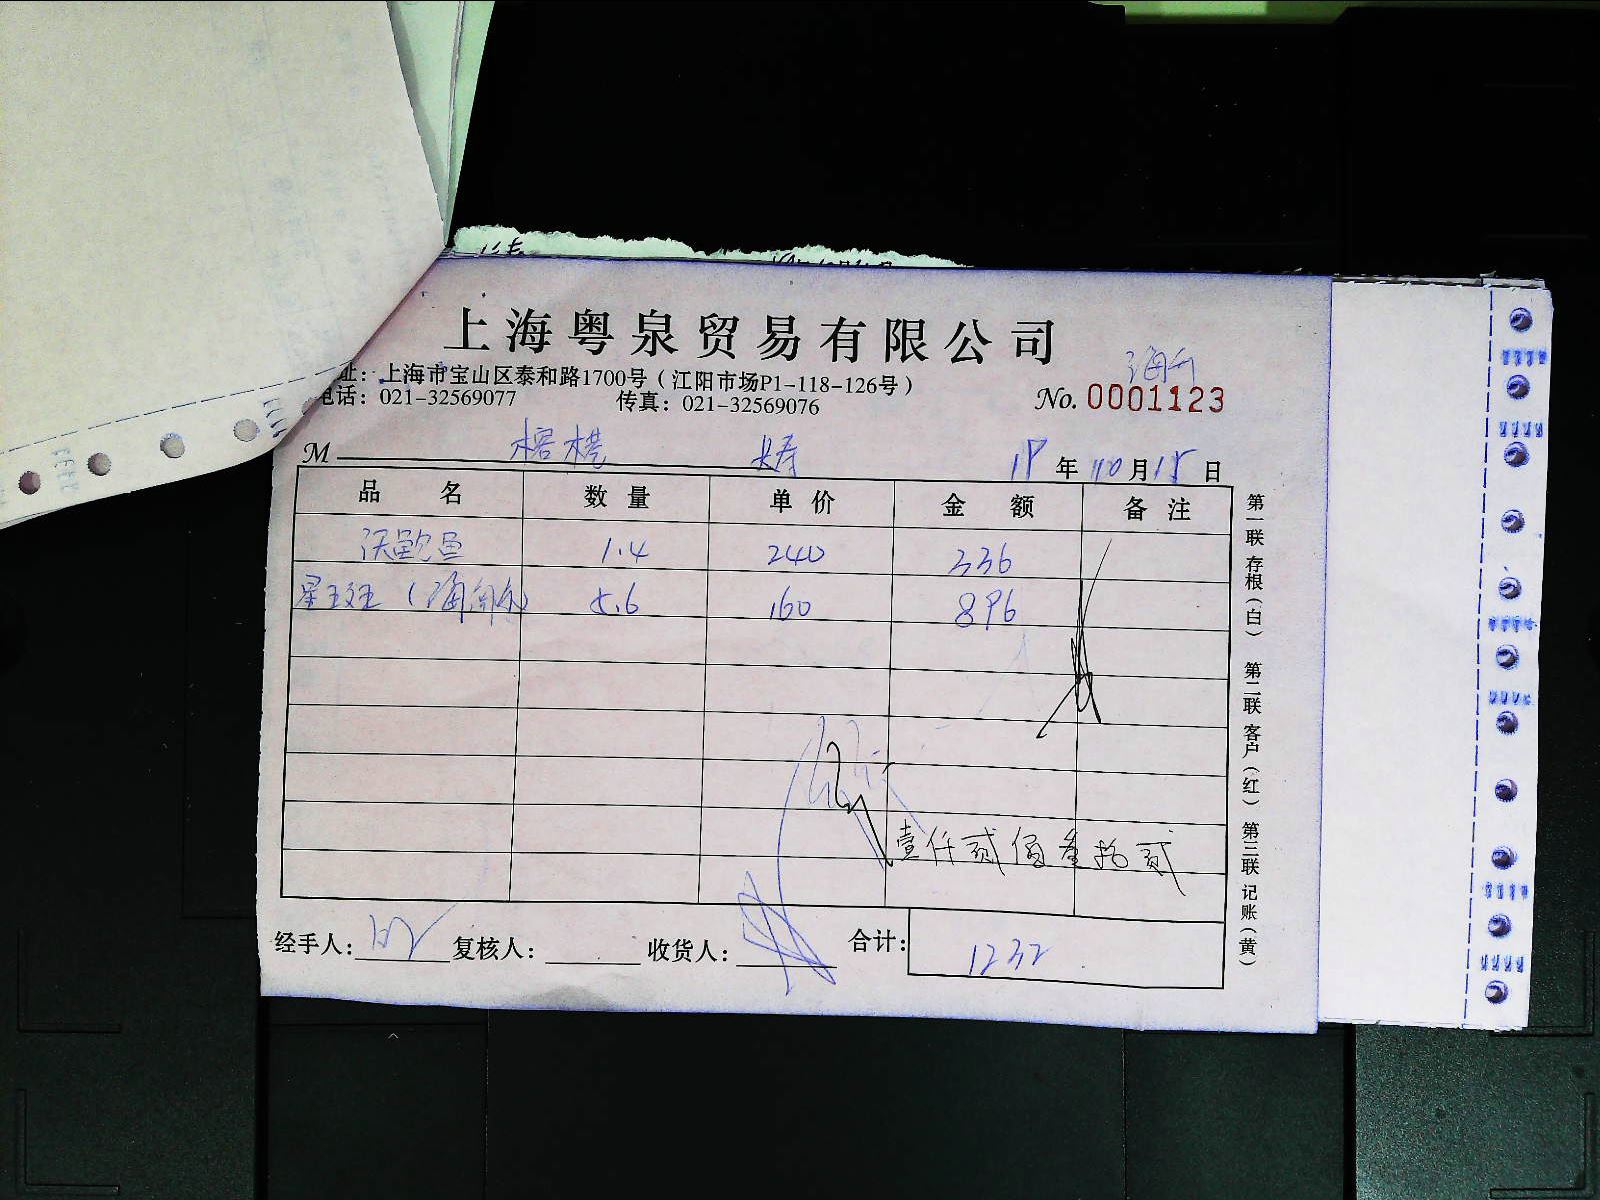 上海粤泉贸易有限公司
址：上海市宝山区泰和路1700号（江阳市场P1-118-126号）
电话：021-32569077 传真：021-32569076
No. 0001123
M 榕港 年10月15日
品名 数量 单价 金额 备注
1.4 240 336
星斑 5.6 160 896
壹仟贰佰叁拾贰
经手人： 复核人： 收货人： 合计： 1232
第一联 存根（白） 第二联 客户（红） 第三联 记账（黄）